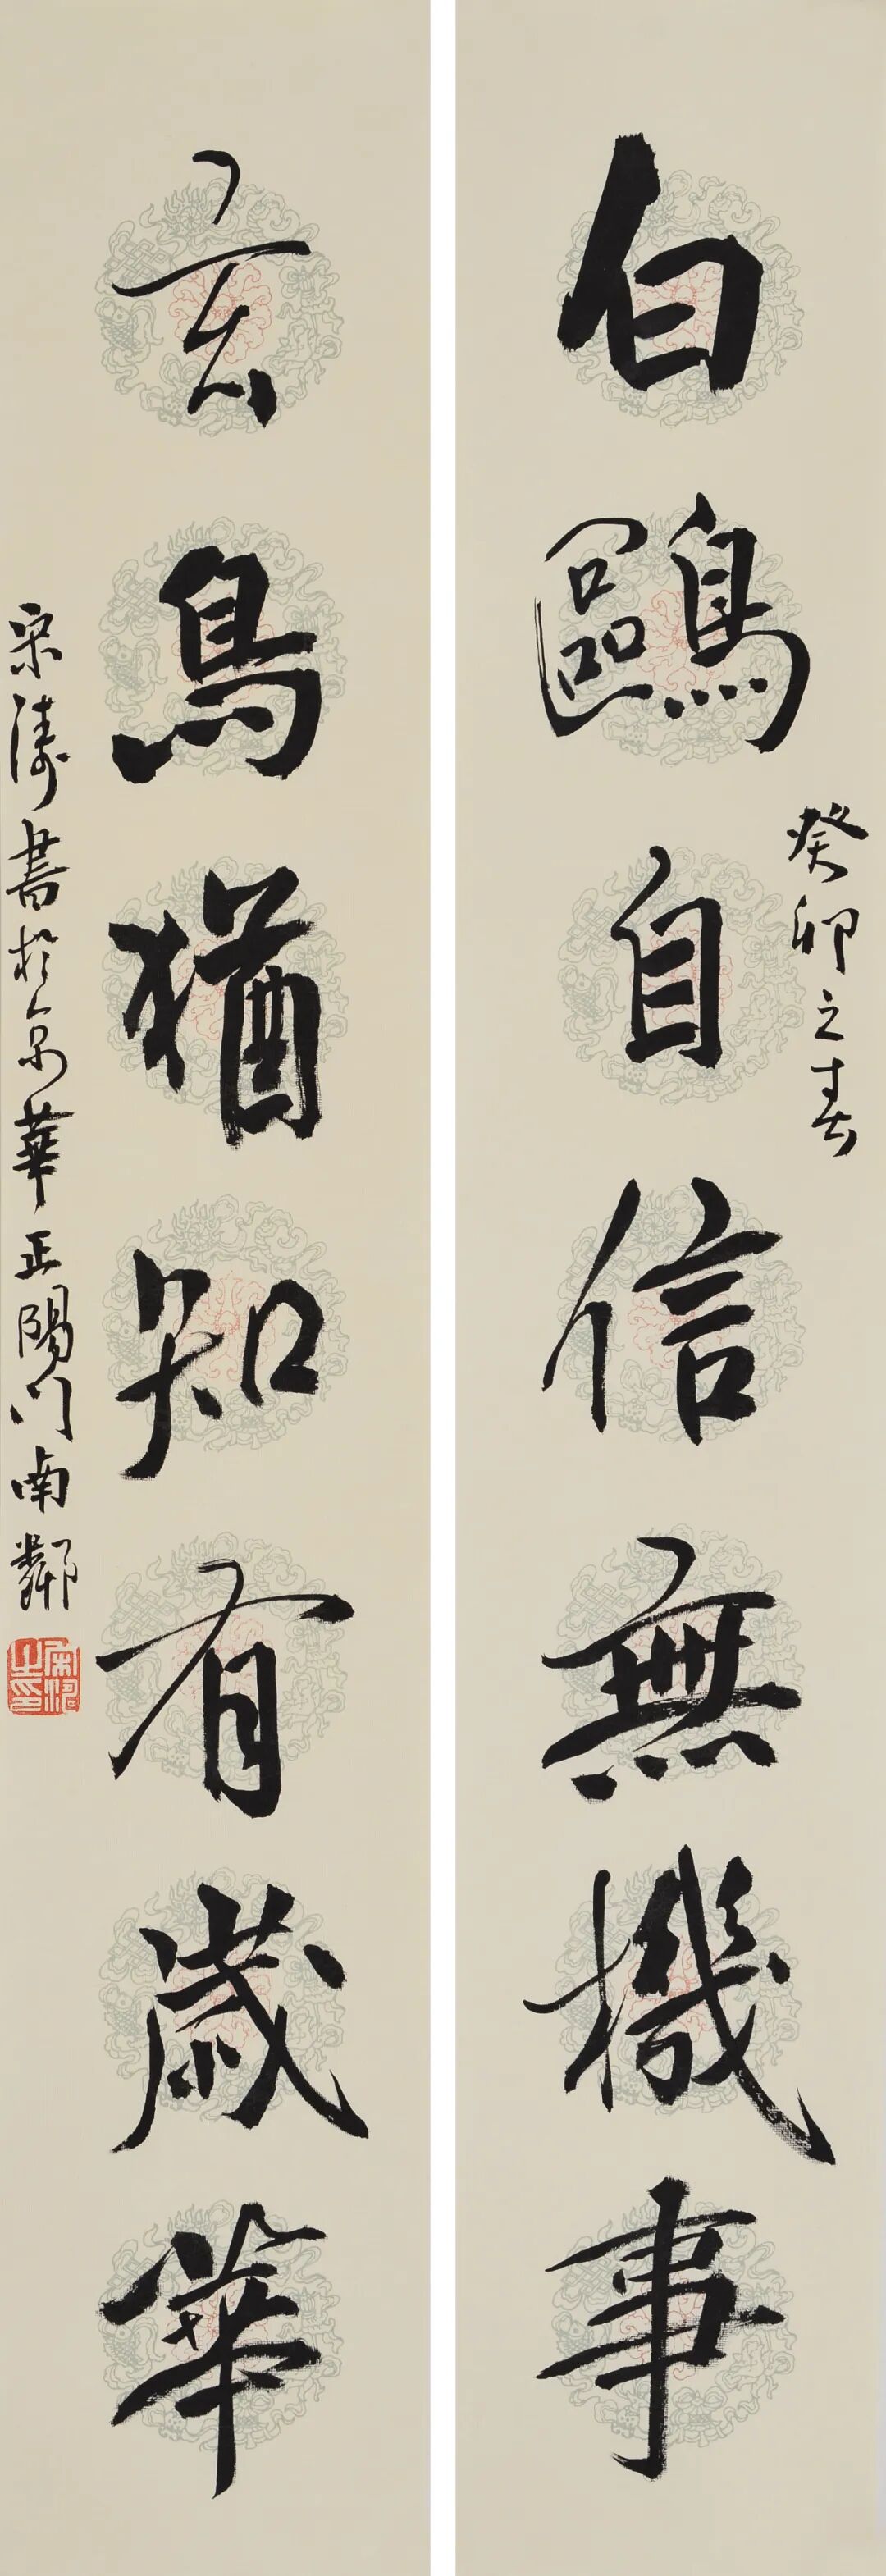 癸卯之春
白鷗自信無機事
玄鳥猶知有歲華
宋濤書於京華正陽門南鄰